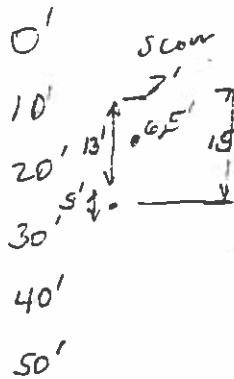 0'
scow
10'
7'
13'
6.5'
15
20'
5'
30'
40'
50'